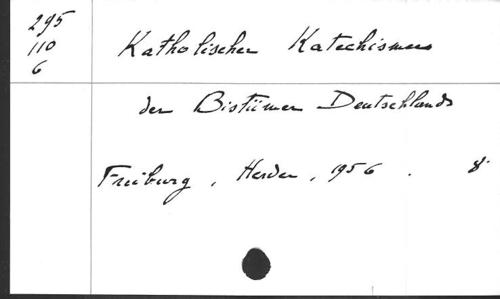 295
110
6
Katholischer Katechismus
der Bistümer Deutschlands
Freiburg, Herder, 1956. 8°